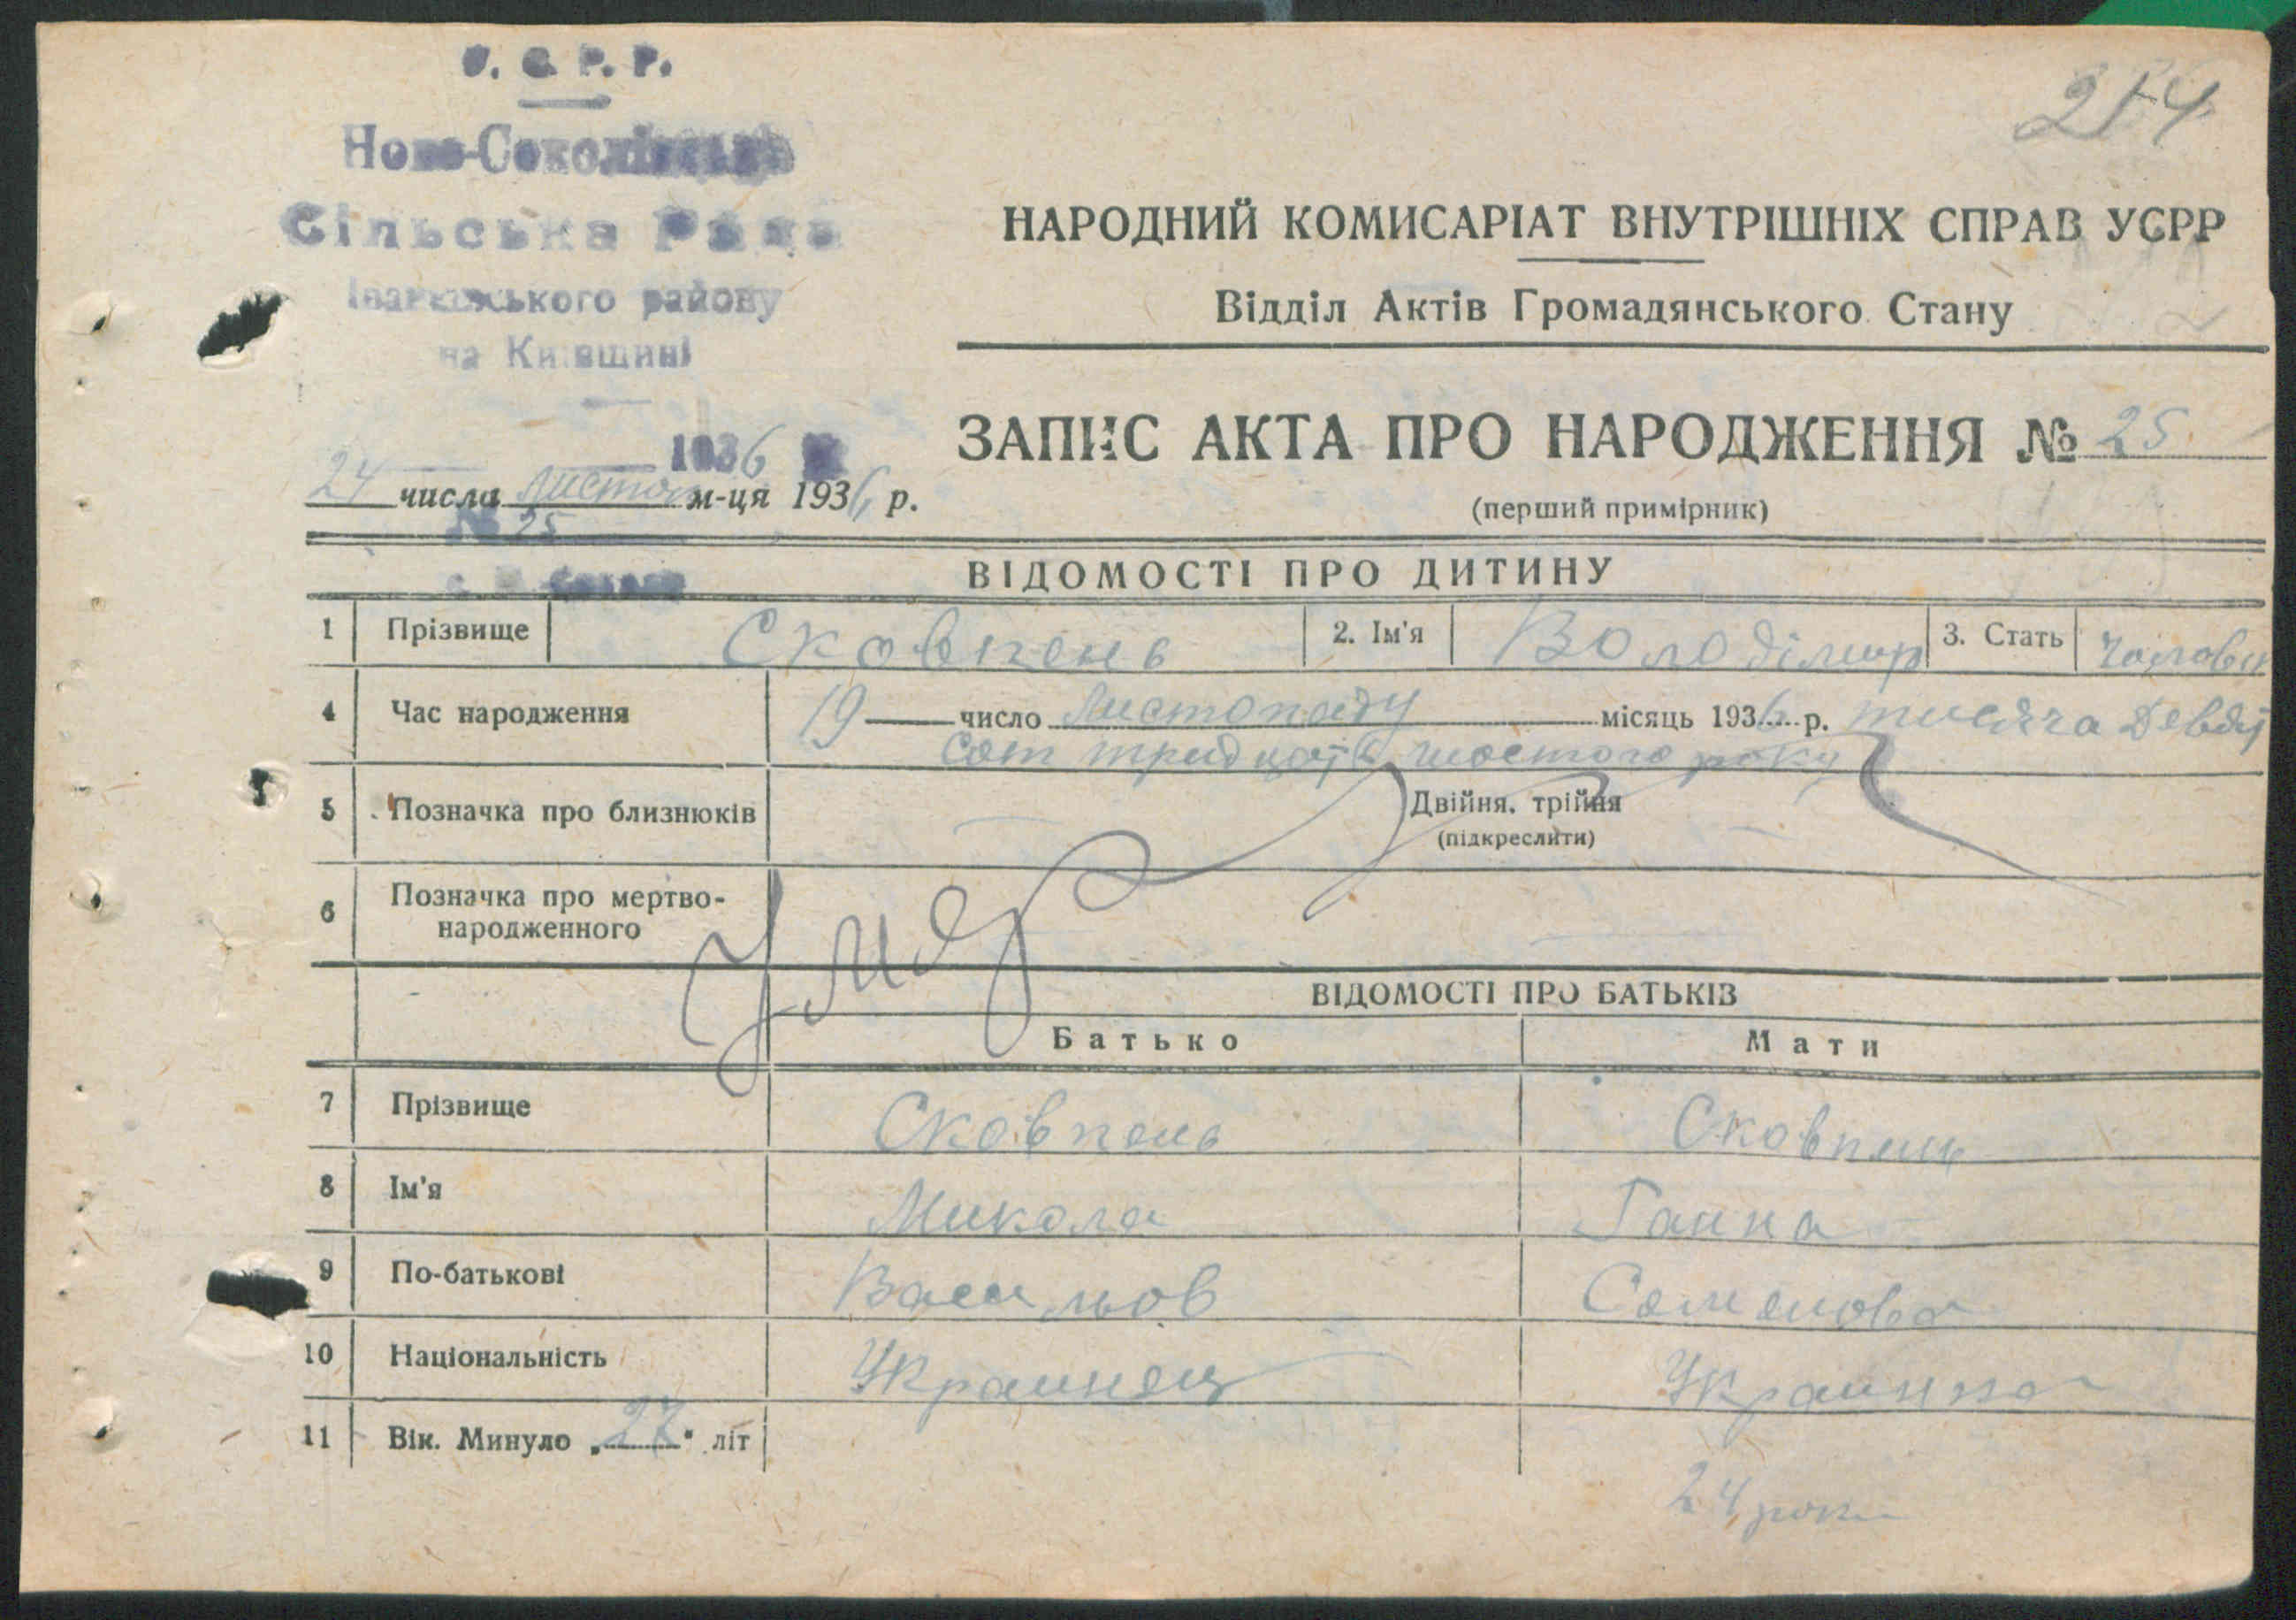 У. С. Р. Р.
254
Ново-Соколівська
Сільська Рада
Іванківського району
на Київщині
НАРОДНИЙ КОМИСАРІАТ ВНУТРІШНІХ СПРАВ УСРР
Відділ Актів Громадянського Стану
1936
24 числа листоп м-ця 1936 р.
№ 25
ЗАПИС АКТА ПРО НАРОДЖЕННЯ № 25
(перший примірник)
ВІДОМОСТІ ПРО ДИТИНУ
1 Прізвище Сковпень 2. Ім'я Володімир 3. Стать Чоловіч
4 Час народження 19 число Листопаду місяць 1936 р. тисяча Девят
сот тридцять шостого року
5 Позначка про близнюків Двійня, трійня
(підкреслити)
6 Позначка про мертво-
народженного
Умер
ВІДОМОСТІ ПРО БАТЬКІВ
Батько Мати
7 Прізвище Сковпень Сковпень
8 Ім'я Микола Ганна
9 По-батькові Васильов Семенова
10 Національність Украинец Украинка
11 Вік. Минуло „27" літ
24 роки